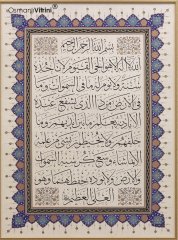 OsmanlıVitrini®
بسم الله الرحمن الرحيم
الله لا اله الا هو الحي القيوم لا تأخذه
سنة ولا نوم له ما في السموات وما
في الارض من ذا الذي يشفع عنده
الا باذنه يعلم ما بين ايديهم وما
خلفهم ولا يحيطون بشيء من علمه
الا بما شاء وسع كرسيه السموات
والارض ولا يؤده حفظهما وهو
العلي العظيم